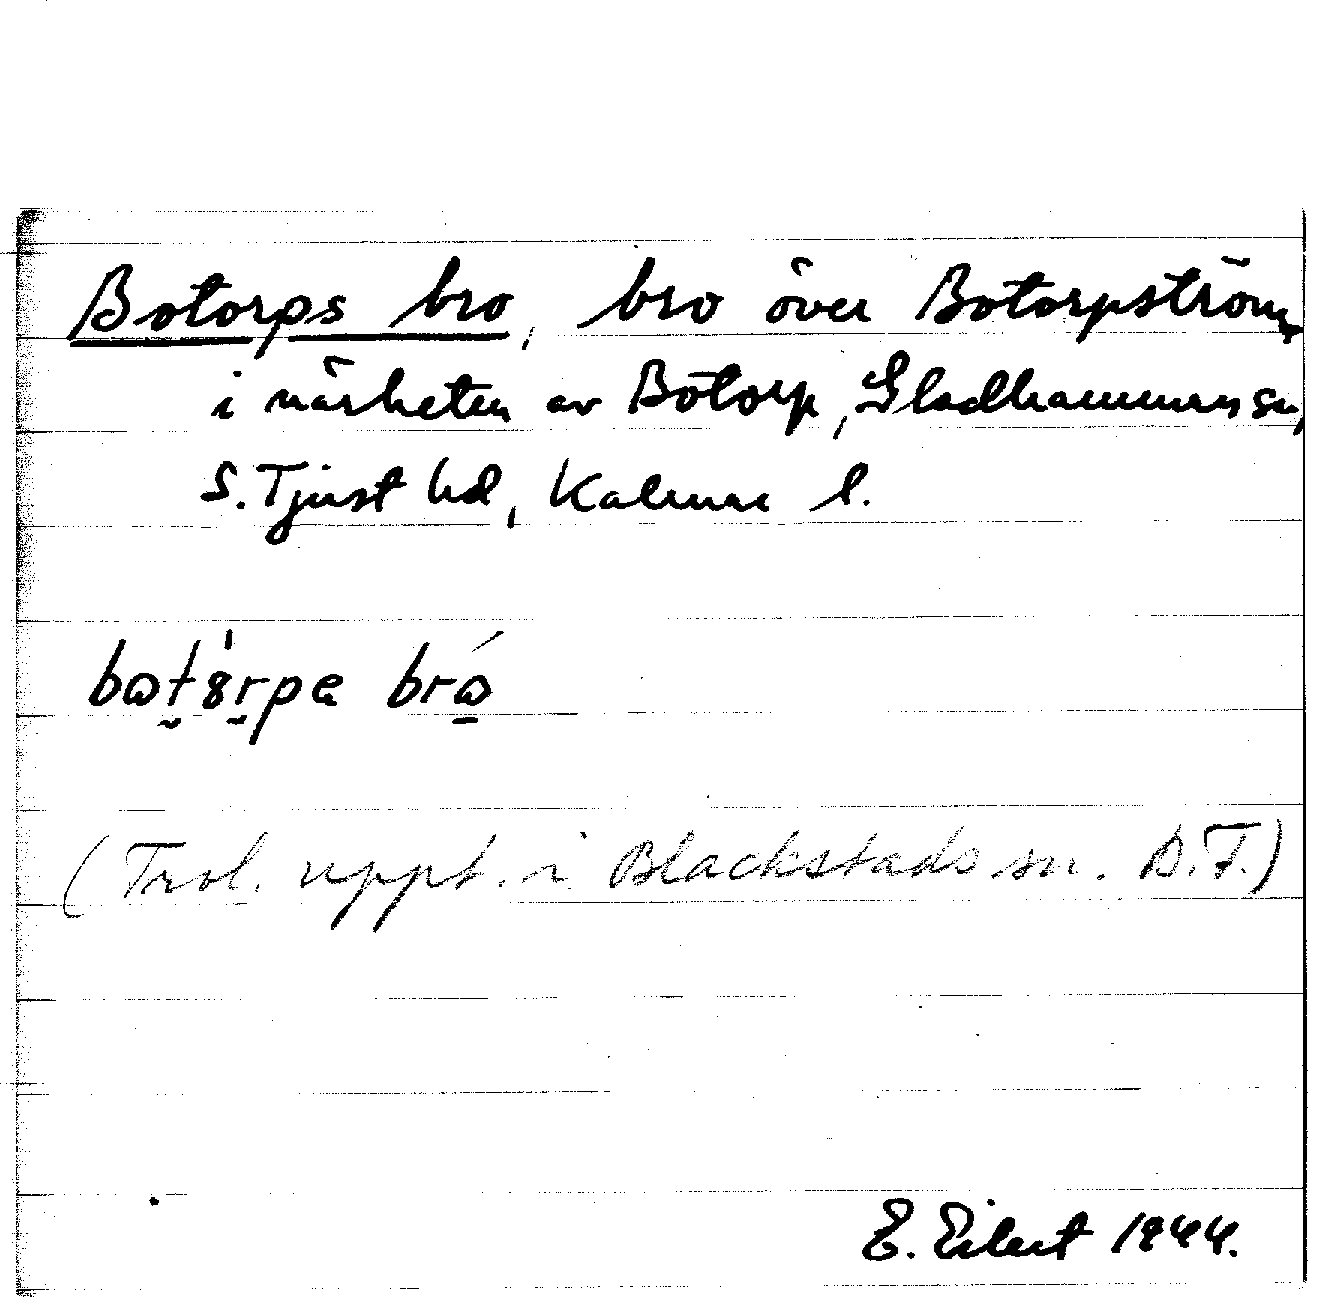 Botorps bro, bro över Botorpström,
i närheten av Botorp, Gladhammars sn,
S. Tjust hd, Kalmar l.
(Trol. uppt. i Blackstads sn. D.F.)
E. Eilert 1944.